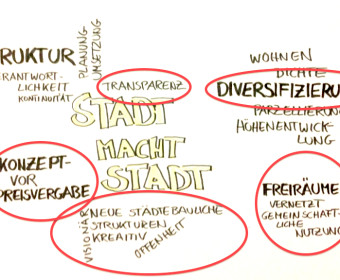 RUKTUR
ERANTWORT-
LICHKEIT
KONTINUITÄT
PLANUNG-
UMSETZUNG
TRANSPARENZ
STADT
MACHT
STADT
WOHNEN
DICHTE
DIVERSIFIZIERU
PARZELLIERUN
HÖHENENTWICK-
LUNG
KONZEPT-
VOR
PREISVERGABE
VISIONÄR
NEUE STÄDTEBAULICHE
STRUKTUREN
KREAITIV
OFFENHEIT
FREIRÄUME
VERNETZT
GEMEINSCHAFT-
LICHE
NUTZUNG